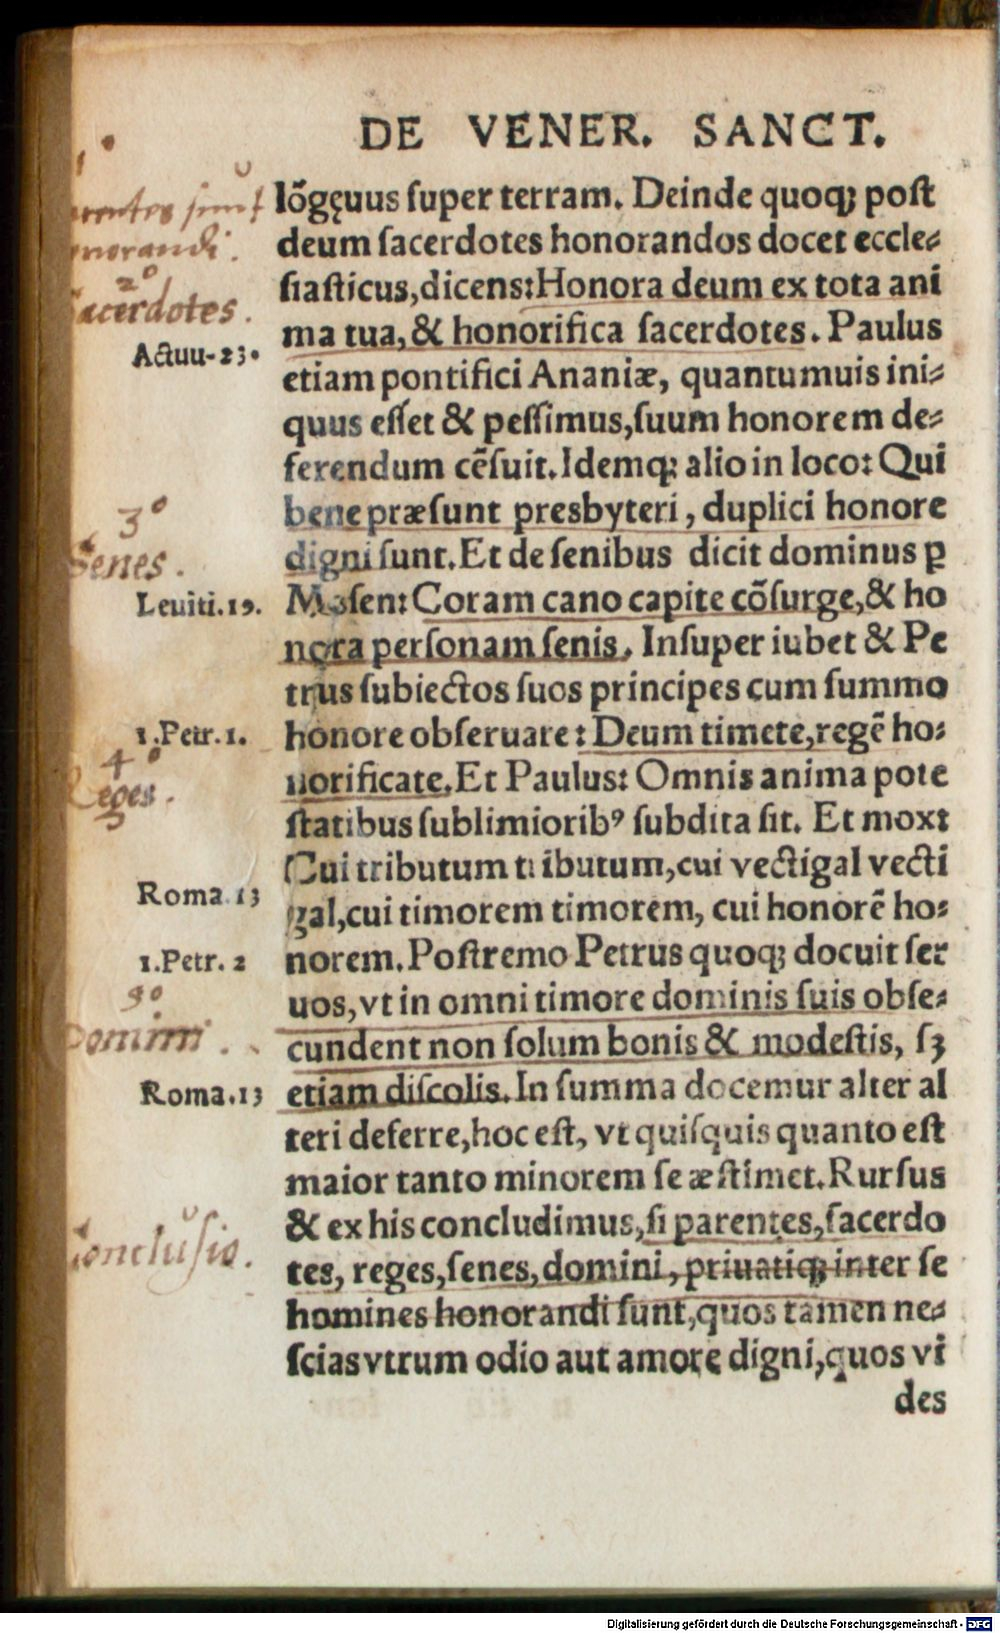 DE VENER. SANCT.
lõgęuus ſuper terram. Deinde quoq; poſt
deum ſacerdotes honorandos docet eccle⸗
ſiaſticus,dicens:Honora deum ex tota ani
ma tua,& honorifica ſacerdotes. Paulus
etiam pontifici Ananiæ, quantumuis ini⸗
quus eſſet & peſſimus,ſuum honorem de⸗
ferendum cẽſuit.Idemq; alio in loco: Qui
bene præſunt presbyteri, duplici honore
digni ſunt.Et de ſenibus dicit dominus ꝑ
Moſen: Coram cano capite cõſurge,& ho
nora perſonam ſenis. Inſuper iubet & Pe
trus ſubiectos ſuos principes cum ſummo
honore obſeruare: Deum timete,regẽ ho⸗
norificate.Et Paulus: Omnis anima pote
ſtatibus ſublimioribꝰ ſubdita ſit. Et mox:
Cui tributum tributum,cui vectigal vecti
gal,cui timorem timorem, cui honorẽ ho⸗
norem.Poſtremo Petrus quoq; docuit ſer
uos,vt in omni timore dominis ſuis obſe⸗
cundent non ſolum bonis & modeſtis, ſꝫ
etiam diſcolis.In ſumma docemur alter al
teri deferre,hoc eſt, vt quiſquis quanto eſt
maior tanto minorem ſe æſtimet.Rurſus
& ex his concludimus,ſi parentes,ſacerdo
tes, reges,ſenes,domini,priuatiq; inter ſe
homines honorandi ſunt,quos tamen ne⸗
ſcias vtrum odio aut amore digni,quos vi
des
1
rentes sunt
norandi.
2º
Sacerdotes.
Actuu-23.
3º
Senes.
Leuiti.19.
1.Petr.1.
4º
Reges.
Roma.13
1.Petr.2
5º
Domini.
Roma.13
Conclusio.
Digitalisierung gefördert durch die Deutsche Forschungsgemeinschaft - DFG